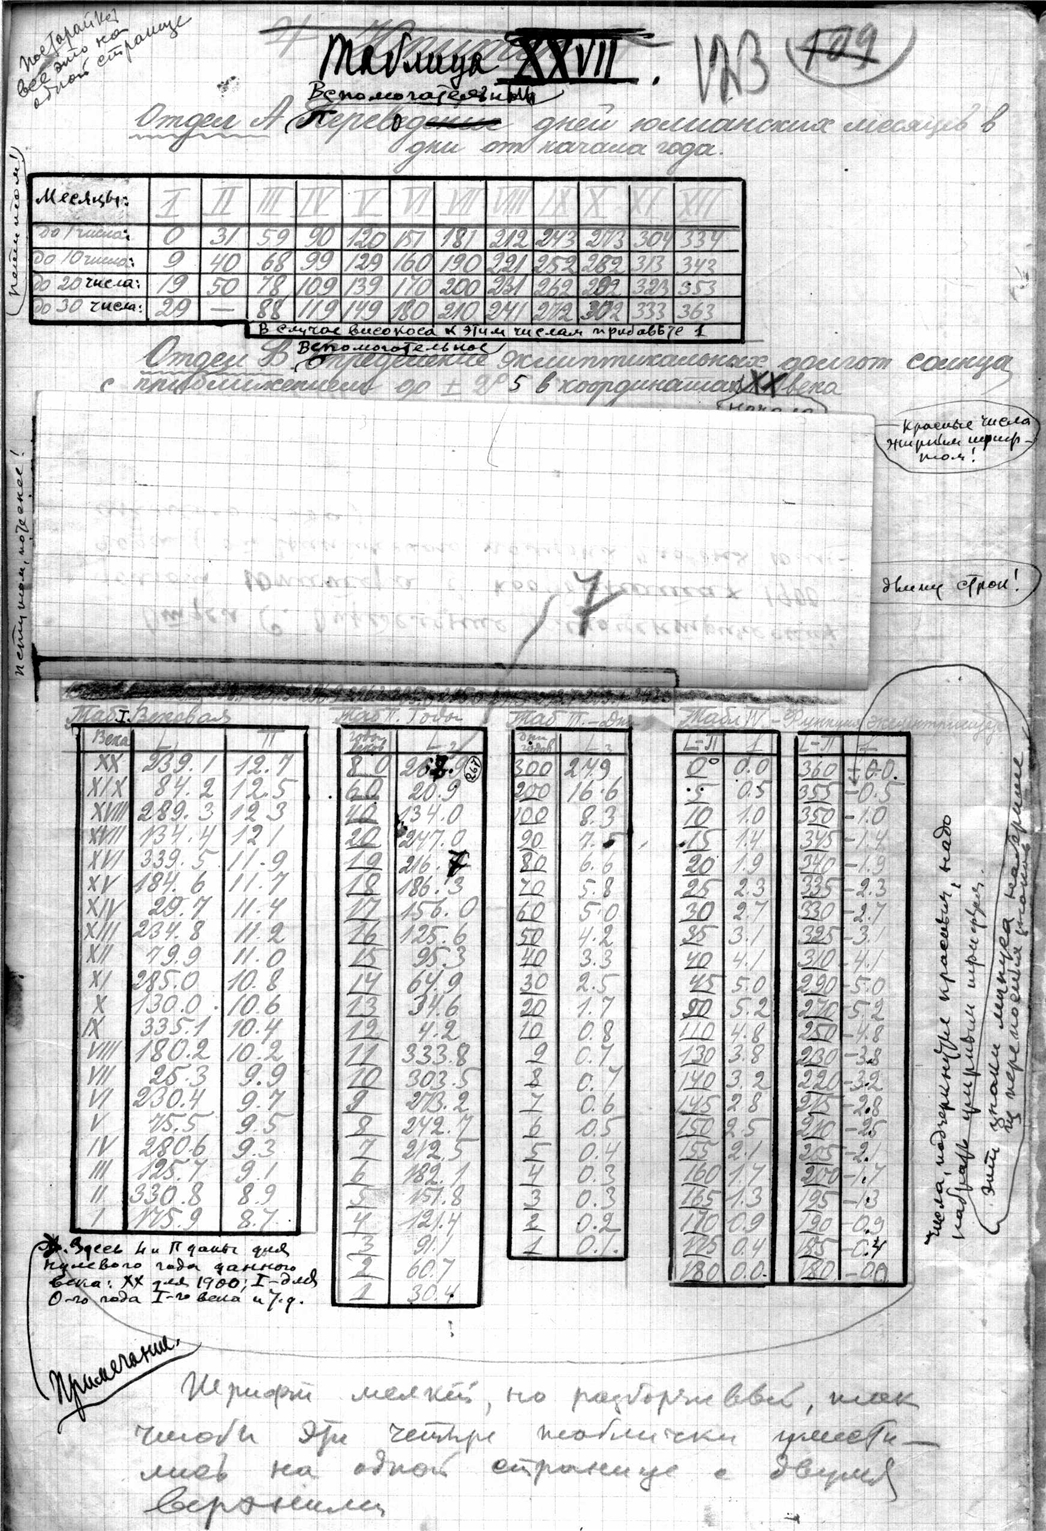 Постарайтесь
все это на
одной странице
Таблица XXVII.
123
129
Вспомогательный
Отдел А. Перевод дней юлианских месяцев в
дни от начала года.
петитом!
Месяцы: I II III IV V VI VII VIII IX X XI XII
до 1 числа: 0 31 59 90 120 151 181 212 243 273 304 334
до 10 числа: 9 40 68 99 129 160 190 221 252 282 313 343
до 20 числа: 19 50 78 109 139 170 200 231 262 292 323 353
до 30 числа: 29 — 88 119 149 180 210 241 272 302 333 363
В случае високоса к этим числам прибавьте 1
Вспомогательное
Отдел В. Определение эклиптикальных долгот солнца
с приближением до ± 2°5 в координатах XX века
начала
Красные числа
жирным шриф-
том!
петитом, потеснее!
длину строк!
7
Таб I. Вековая
Века L П
XX 239.1 12.7
XIX 84.2 12.5
XVIII 289.3 12.3
XVII 134.4 12.1
XVI 339.5 11.9
XV 184.6 11.7
XIV 29.7 11.4
XIII 234.8 11.2
XII 79.9 11.0
XI 285.0 10.8
X 130.0 10.6
IX 335.1 10.4
VIII 180.2 10.2
VII 25.3 9.9
VI 230.4 9.7
V 75.5 9.5
IV 280.6 9.3
III 125.7 9.1
II 330.8 8.9
I 175.9 8.7
Таб II. Годы
годы веков L2
80 267.9
267
60 20.9
40 134.0
20 247.0
19 216.7
18 186.3
17 156.0
16 125.6
15 95.3
14 64.9
13 34.6
12 4.2
11 333.8
10 303.5
9 273.2
8 242.7
7 212.5
6 182.1
5 151.8
4 121.4
3 91.1
2 60.7
1 30.4
Таб III.—Дни
дни годов L3
300 24.9
200 16.6
100 8.3
90 7.5
80 6.6
70 5.8
60 5.0
50 4.2
40 3.3
30 2.5
20 1.7
10 0.8
9 0.7
8 0.7
7 0.6
6 0.5
5 0.4
4 0.3
3 0.3
2 0.2
1 0.1
Табл IV.—Функция эксцентрисит
L—П L—П
0° 0.0 360 ± 0.0
5 0.5 355 -0.5
10 1.0 350 -1.0
15 1.4 345 -1.4
20 1.9 340 -1.9
25 2.3 335 -2.3
30 2.7 330 -2.7
35 3.1 325 -3.1
40 4.1 310 -4.1
45 5.0 290 -5.0
90 5.2 270 -5.2
110 4.8 250 -4.8
130 3.8 230 -3.8
140 3.2 220 -3.2
145 2.8 215 -2.8
150 2.5 210 -2.5
155 2.1 205 -2.1
160 1.7 200 -1.7
165 1.3 195 -1.3
170 0.9 190 -0.9
175 0.4 185 -0.4
180 0.0 180 -0.0
Числа, подчеркнутые красным, надо
набрать жирным шрифтом.
Эти знаки минуса на
Здесь L и П даны для
нулевого года данного
века: XX для 1900; I-для
0-го года I-го века и т.д.
Примечание.
Шрифт мелкий, но разборчивый, так
чтобы эти четыре таблички умести—
лись на одной странице с двумя
верхними